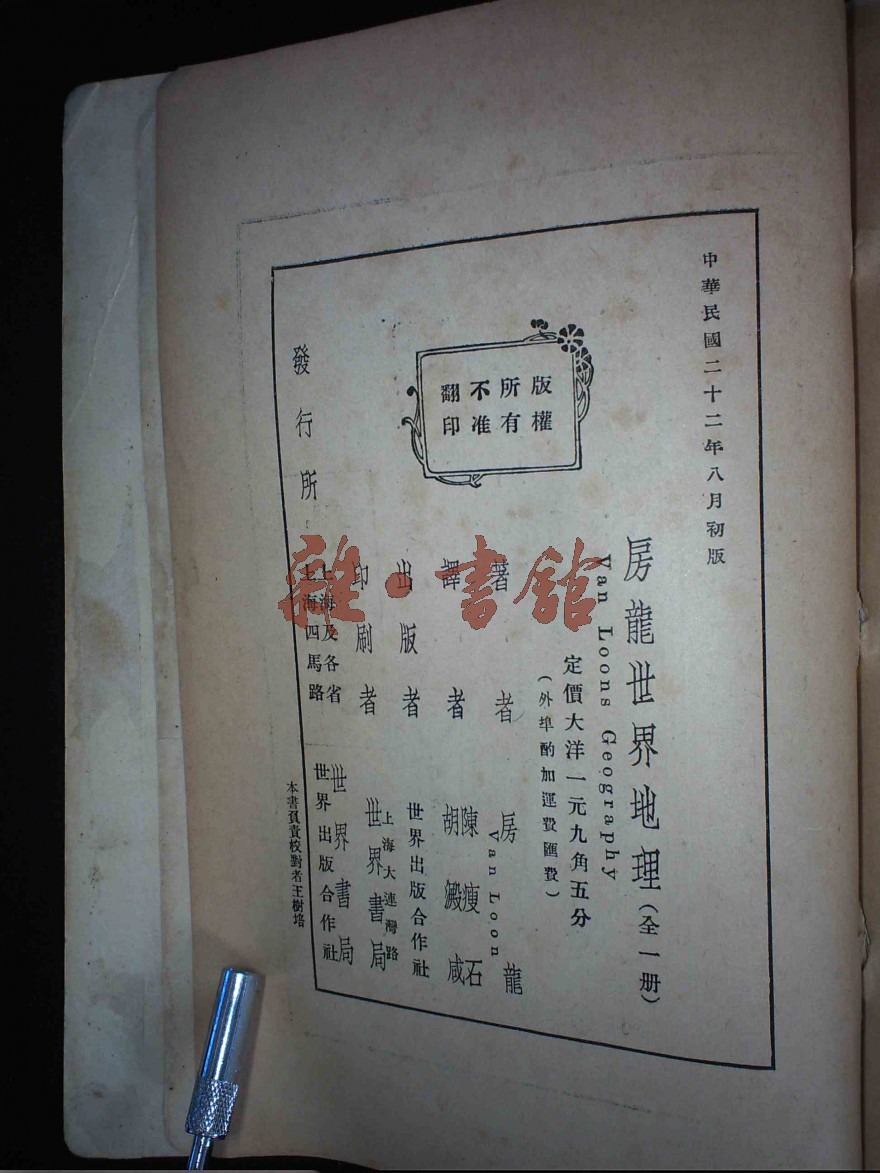 中華民國二十二年八月初版
房龍世界地理（全一册）
Van Loons Geography
定價大洋一元九角五分
（外埠酌加運費匯費）
版權
所有
不准
翻印
著者 房龍
Van Loon
譯者 陳瘦石
胡澱咸
出版者 世界出版合作社
印刷者 上海大連灣路
世界書局
發行所 上海及各省 世界書局
上海四馬路 世界出版合作社
本書負責校對者王樹培
雜·書館